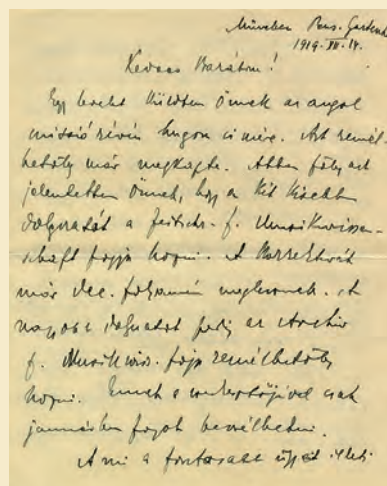 München Pens. Gartenh
1919. XII. 14.
Kedves Barátom!
Egy levelet küldtem Önnek az angol
misszió révén húgom címére. Azt remél-
hetőleg már megkapta. Abban főleg azt
jelentettem Önnek, hogy a két kisebb
dolgozatát a Zeitschr. f. Musikwissen-
schaft fogja hozni. A Korrektúrák
már dec. folyamán meglesznek. A
nagyobb dolgozatot pedig az Archiv
f. Musikwiss. fogja remélhetőleg
hozni. Ennek a szerkesztőjével csak
januárban fogok beszélhetni.
Ami a fontosabb ügyét illeti